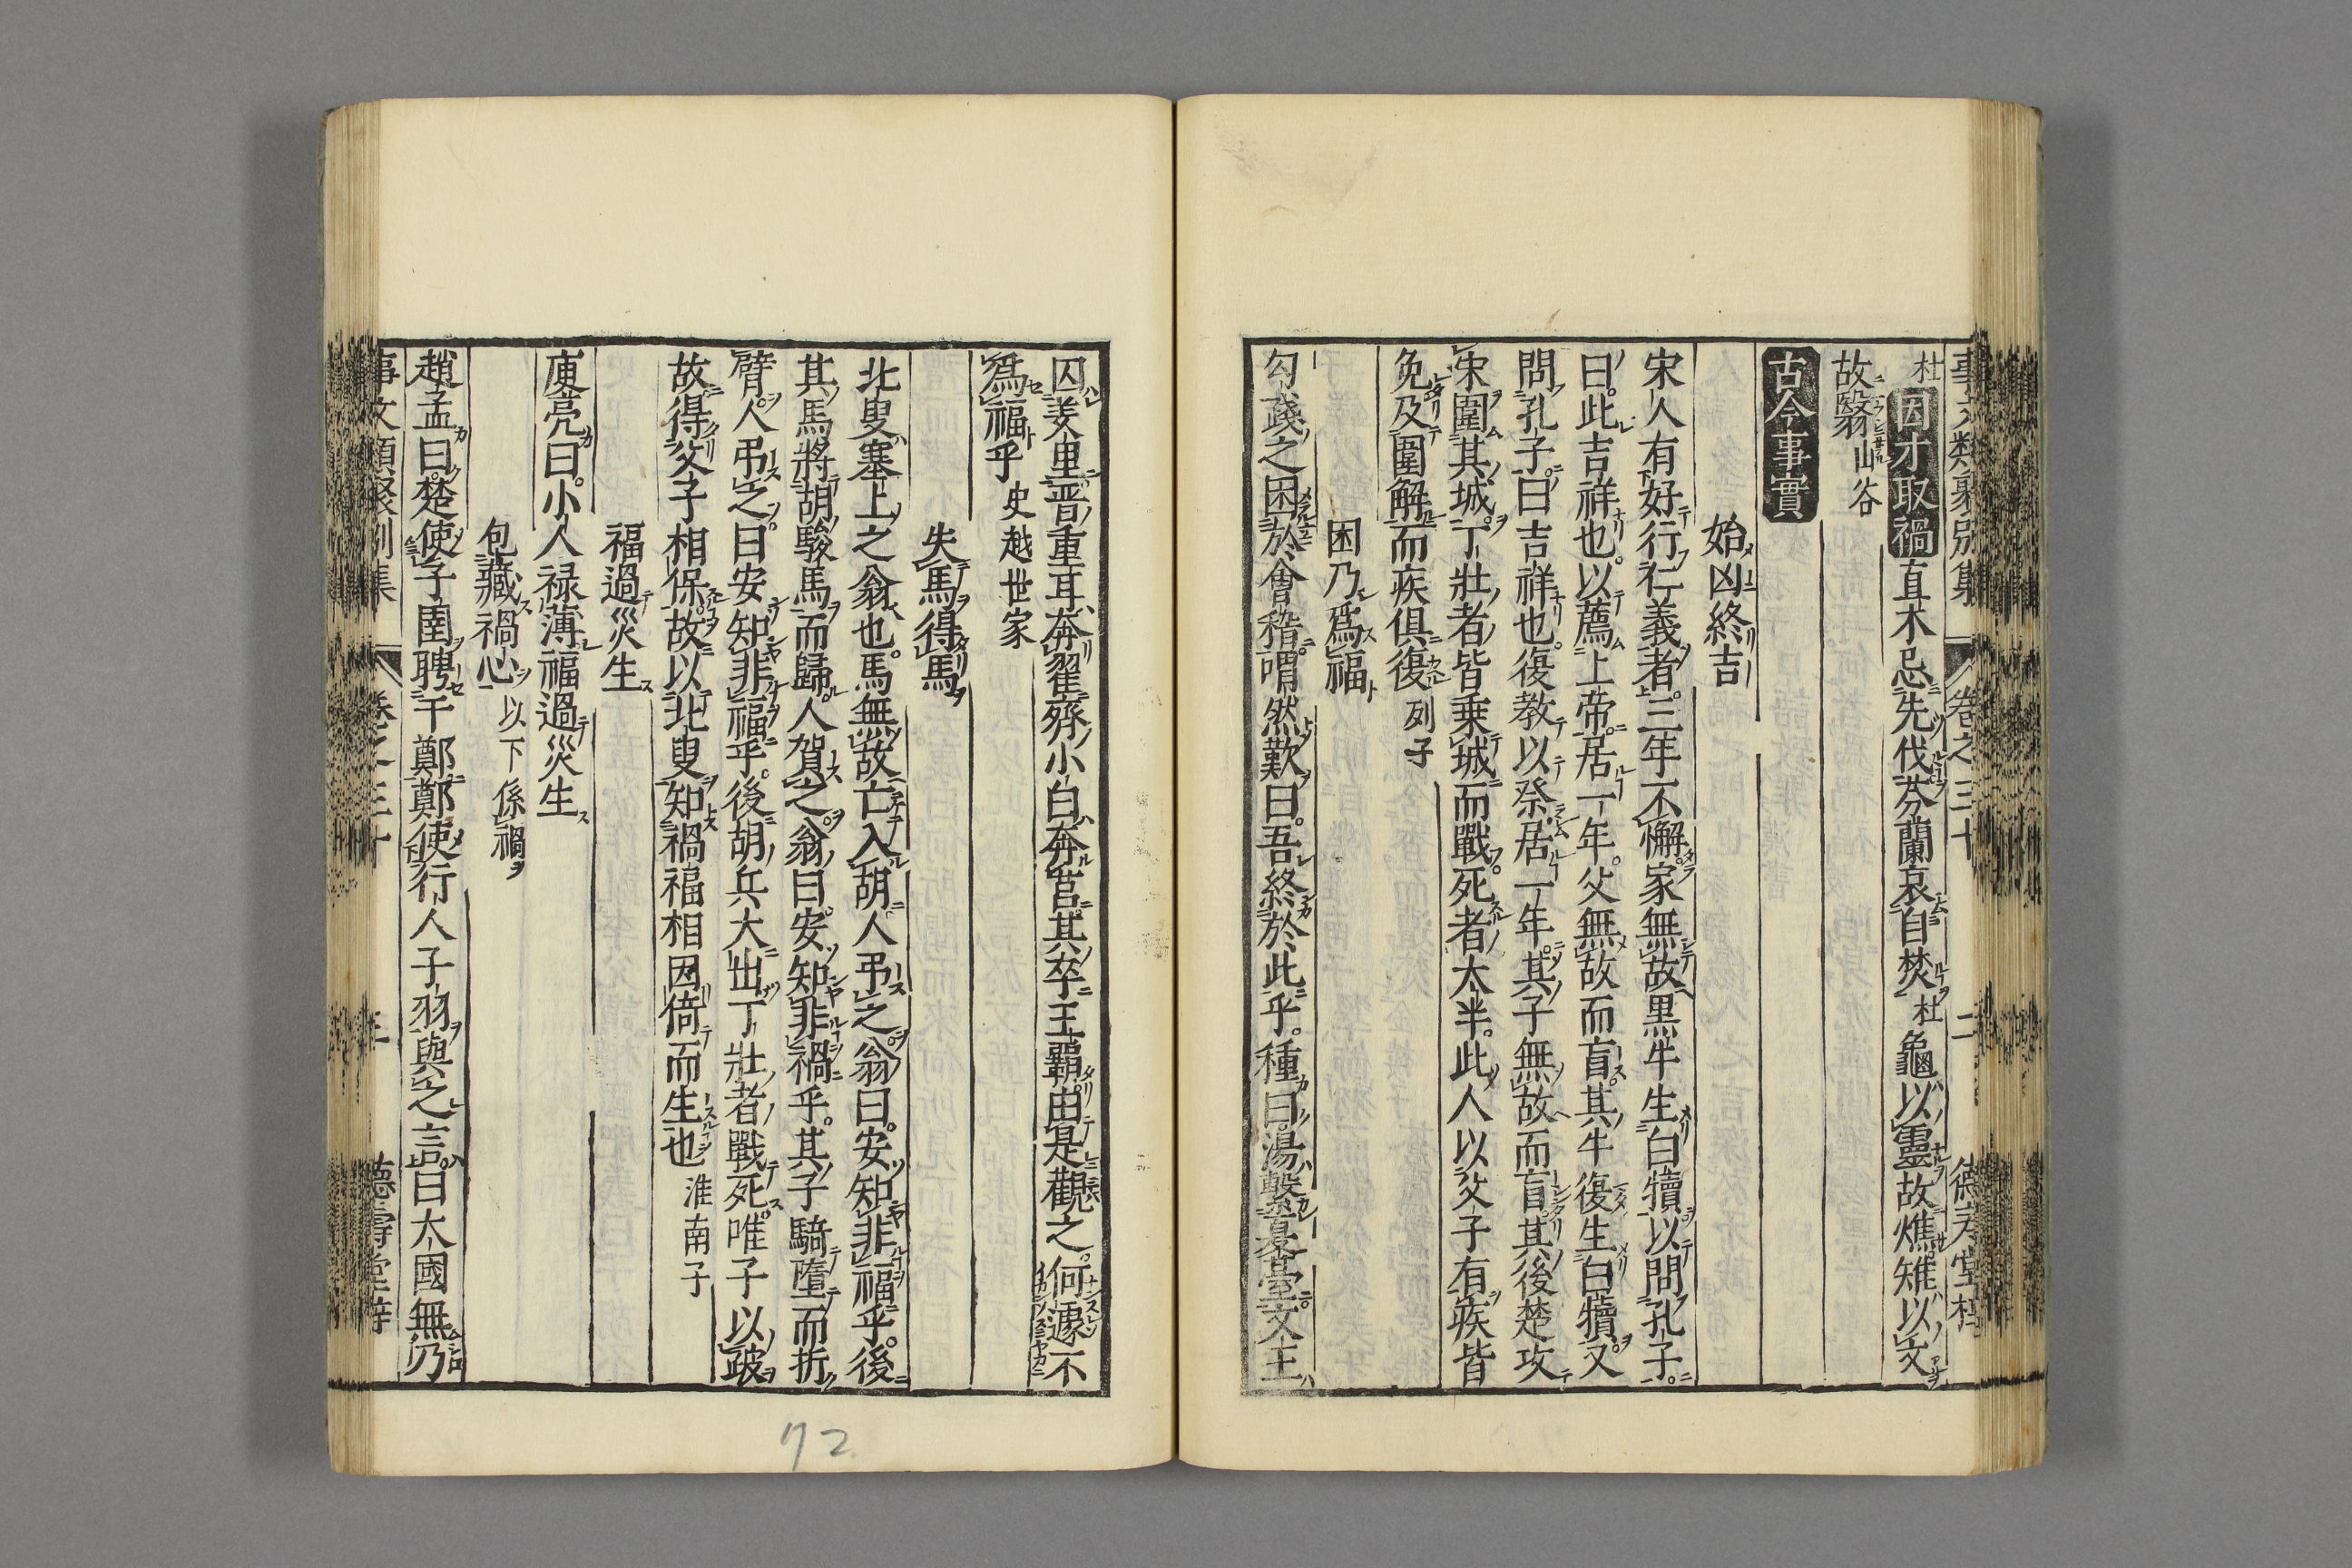 杜 因才取禍 直木忌先伐芬蘭哀自焚 杜 龜以靈故燋雉以文
故翳 山谷
古今事實
始凶終吉
宋人有好行仁義者三年不懈家無故黒牛生白犢以問孔子
曰此吉祥也以薦上帝居一年父無故而盲其牛復生白犢又
問孔子曰吉祥也復教以祭居一年其子無故而盲其後楚攻
宋圍其城丁壯者皆乗城而戰死者太半此人以父子有疾皆
免及圍解而疾俱復 列子
困乃爲福
勾踐之困於會稽喟然歎曰吾終於此乎種曰湯繫夏臺文王
囚羑里晋重耳奔翟齊小白奔莒其卒王覇由是觀之何遽不
爲福乎 史越世家
失馬得馬
北叟塞上之翁也馬無故亡入胡人弔之翁曰安知非福乎後
其馬將胡駿馬而歸人賀之翁曰安知非禍乎其子騎墮而折
臂人弔之曰安知非福乎後胡兵大出丁壯者戰死唯子以跛
故得父子相保故以北叟知禍福相因倚而生也 淮南子
福過災生
庾亮曰小人禄薄福過災生
包藏禍心 以下係禍
趙孟曰楚使子圍聘于鄭鄭使行人子羽與之言曰大國無乃
事文類聚別集 卷之三十 三 德壽堂梓
72